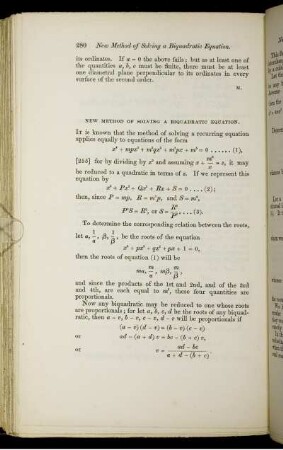 280 New Method of Solving a Biquadratic Equation.
its ordinates. If a = 0 the above fails; but as at least one of
the quantities a, b, c must be finite, there must be at least
one diametral plane perpendicular to its ordinates in every
surface of the second order.
NEW METHOD OF SOLVING A BIQUADRATIC EQUATION.
IT is known that the method of solving a recurring equation
applies equally to equations of the form
for by dividing by x² and assuming x + = z, it may
be reduced to a quadratic in terms of z. If we represent this
equation by
x⁴ + Px³ + Qx² + Rx + S = 0 ....(2);
then, since P = mp, R = m³p, and S = m⁴,
P²S = R², or S = R²/P² ....(3).
To determine the corresponding relation between the roots,
let α, 1/α, β, 1/β, be the roots of the equation
x⁴ + px³ + qx² + px + 1 = 0,
then the roots of equation (1) will be
mα, m/α, mβ, m/β,
and since the products of the 1st and 2nd, and of the 3rd
and 4th, are each equal to m², these four quantities are
proportionals.
Now any biquadratic may be reduced to one whose roots
are proportionals; for let a, b, c, d be the roots of any biquad-
ratic, then a - v, b - v, c - v, d - v will be proportionals if
(a - v) (d - v) = (b - v) (c - v)
or ad - (a + d) v = bc - (b + c) v,
or v = (ad - bc)/(a + d - (b + c)).